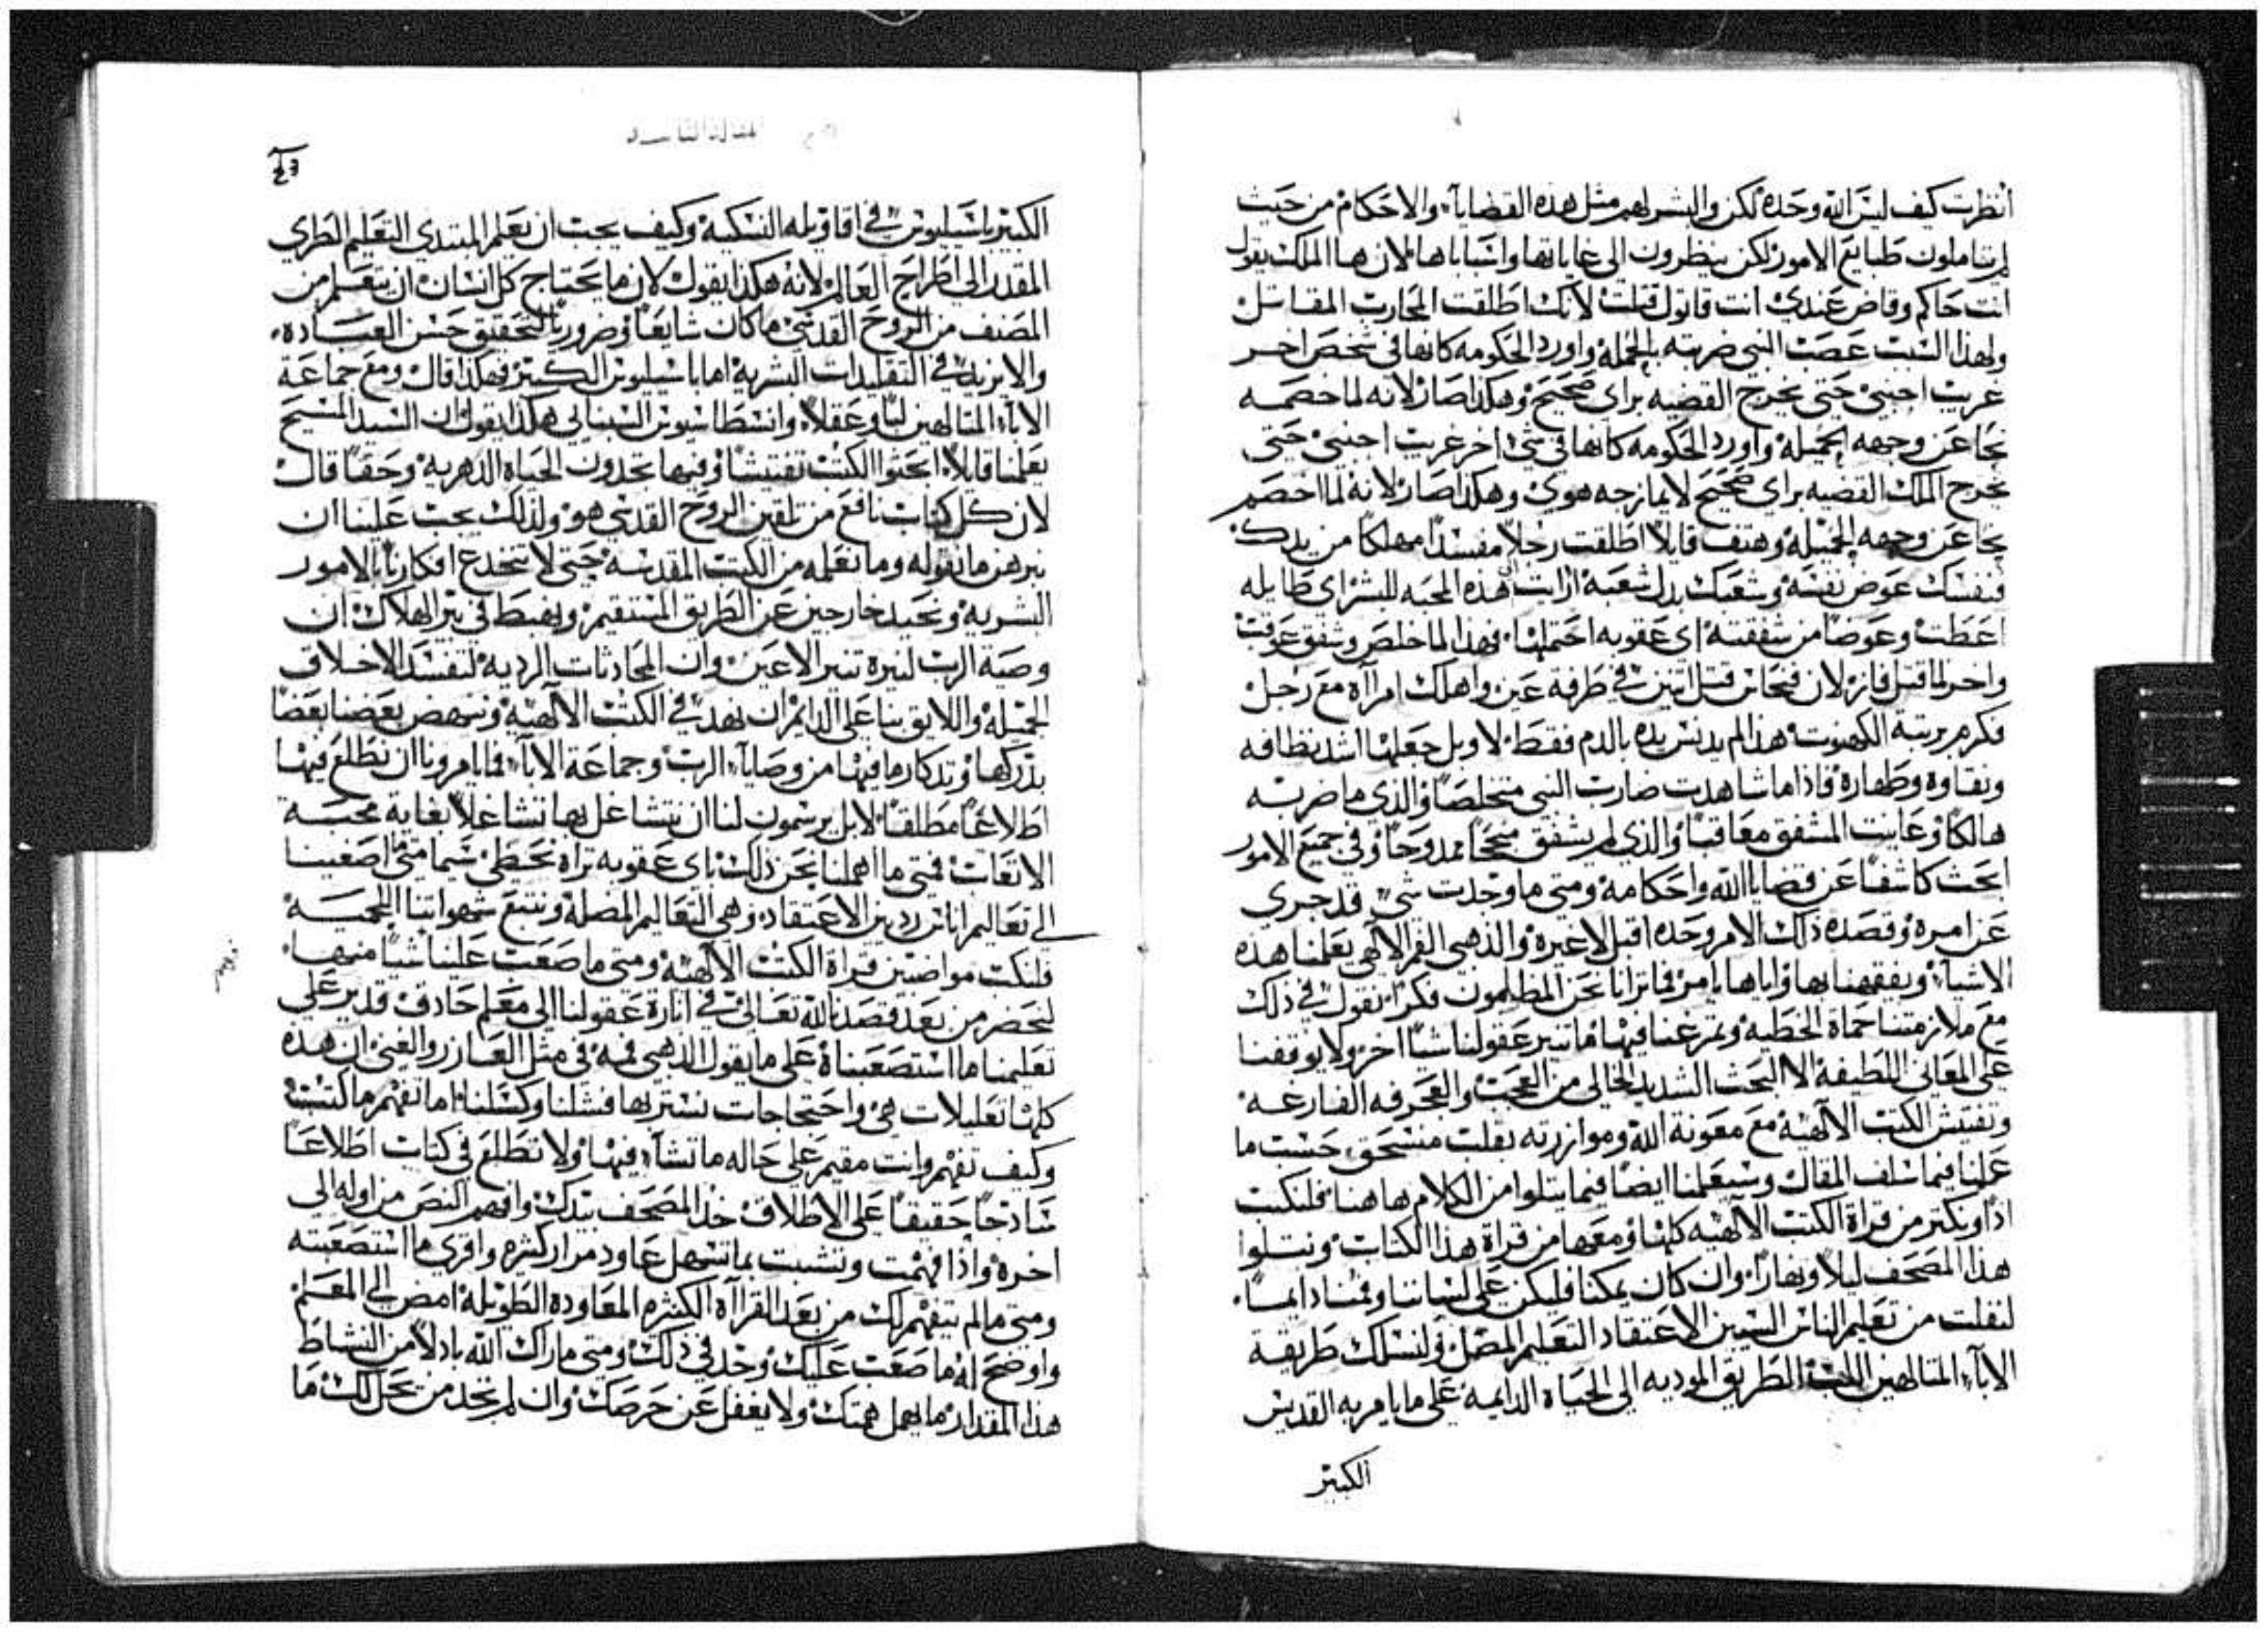 انظرت كيف ليس الله وحده لكن والبشر لهم مثل هذه القضايا، والاحكام من حيث
لم يتاملون طبايع الامور لكن ينظرون الى غاياتها واسباباها لان ها الملك يقول
انت حاكم وقاض عندي انت قاتول قتلت لانك اطلقت المحارب المقاتل
ولهذا السبب عصب النبي ضربته بالجملة واورد الحكومه كانها في شخص اخر
غريب اجنبي حتى يخرج القضيه براى صحيح وهكذا صار لانه لما خصمه
نحا عن وجهه الجميله واورد الحكومه كانها في شي اخر غريب اجنبي حتى
يخرج الملك القضيه براى صحيح لا يمازجه هوى وهكذا صار لانه لما اخصم
نحا عن وجهه الجميله وهتف قايلا اطلقت رجلا مفسدا مهلكا من يدك
فنفسك عوض نفسه وشعبك بدل شعبه ارايت هذه المحبه للبشر اى طايله
اعطت وعوضا من شفقته اى عقوبه احتملها، فهذا لما خلص وشفق عوقب
واخر لما قتل فاز لان فنحاس قتل اثنين في طرفة عين واهلك امراة مع رجل
فكرم برتبة الكهنوت هذا لم يدنس يده بالدم فقط لا وبل جعلها اشد نظافه
ونقاوه وطهاره فاذا ما شاهدت ضارب النبي متخلصا والذي ما ضربه
هالكا وعاينت المشفق معاقبا والذي لم يشفق منجحا ممدوحا وفي جميع الامور
ابحث كاشفا عن قضايا الله واحكامه ومتى ما وجدت شي قد جرى
عن امره وقصده ذلك الامر وحده اقبل لا غيره والذهبى الفم الالهى يعلمنا هذه
الاشياء ويفقهنا بها واياها يامر فما ترانا نحن المظلمون فكرا نقول في ذلك
مع ملازمتنا حماة الخطيه وتمرغنا فيها ما تنير عقولنا شيا اخر ولا يوقفنا
على المعاني اللطيفه الا البحث الشديد الخالى من العجب والعجرفه الفارغه
وتفتيش الكتب الالهيه مع معونة الله وموازرته بقلب منسحق حسب ما
علمنا فيما سلف المقال وسيعلمنا ايضا فيما يتلوا من الكلام ها هنا فلنكب
اذا ونكثر من قراة الكتب الالهيه كلها ومعها من قراة هذا الكتاب ونتلوا
هذا المصحف ليلا ونهارا وان كان يمكنا فليكن على لساننا وفمنا دايما،
لنفلت من تعليم الناس السيين الاعتقاد التعليم المضل ولنسلك طريقة
الاباء المتالهين الطريق الموديه الى الحياه الدايمه على ما يامر به القديس
الكبير
المقالة
الكبير باسيليوس في اقاويله النسكيه وكيف يجب ان يعلم المبتدى التعليم الطرى
المقدر الى اطراح العالم لانه هكذا يقول لان ما يحتاج كل انسان ان يتعلم من
المصنف من الروح القدسى ما كان شايعا وضروريا لتحقيق حسن العباده،
والا يزيد في التقليدات البشريه اما باسيليوس الكبير فهكذا قال ومع جماعة
الاباء المتالهين لبا وعقلا، وانسطاسيوس السينايى هكذا يقول ان السيد المسيح
يعلمنا قايلا ابحثوا الكتب تفتيشا وفيها تجدون الحياه الدهريه وحقا قال
لان كل كتاب نافع من تلقين الروح القدسى هو ولذلك يجب علينا ان
نبرهن ما نقوله وما نعلمه من الكتب المقدسه حتى لا تنخدع افكارنا بالامور
البشريه ونحيد خارجين عن الطريق المستقيم ونهبط في بير الهلاك ان
وصية الرب لنيرة تنير الاعين وان المحادثات الرديه لتفسد الاخلاق
الجميله واللايق بنا على الدايم ان نهد في الكتب الالهيه وننهض بعضنا بعضا
بذكرها وتذكار ما فيها من وصايا الرب وجماعة الاباء فما يامرونا ان نطلع فيها
اطلاعا مطلقا لا بل يرسمون لنا ان نتشاغل بها تشاغلا بغاية محبه
الاتعاب فمتى ما اهملنا نحن ذلك باى عقوبه تراه نحظى سيما متى ما اصغينا
الى تعاليم اناس رديين الاعتقاد وهى التعاليم المضله ونتبع شهواتنا اللحميه
فلنكب مواضبين قراة الكتب الالهيه ومتى ما صعب علينا شيا منها،
لنحضر من بعد قصدنا الله تعالى في انارة عقولنا الى معلم حاذق قدير على
تعليمنا ما استصعبناه على ما يقول الذهبى فمه في مثل العازر والغنى ان هذه
كلها تعليلات هى واحتجاجات نستر بها فشلنا وكسلنا اما تفهم ما كتب
وكيف تفهم وانت مقيم على حاله ما تشاء فيها ولا تطلع في كتاب اطلاعا
ساذجا حقيقا على الاطلاق خذ المصحف بيدك وافهم النص من اوله الى
اخره واذا فهمت وتشبت بما تسهل عاود مرار كثيره واقرى ما استصعبته
ومتى ما لم يتفهم لك من بعد القراآة الكثيره المعاوده الطويله امض الى المعلم
واوضح له ما صعب عليك وجد في ذلك ومتى ما راك الله باذلا من النشاط
هذا المقدار ما يهمل همتك ولا يغفل عن حرصك وان لم تجد من يحل لك ما